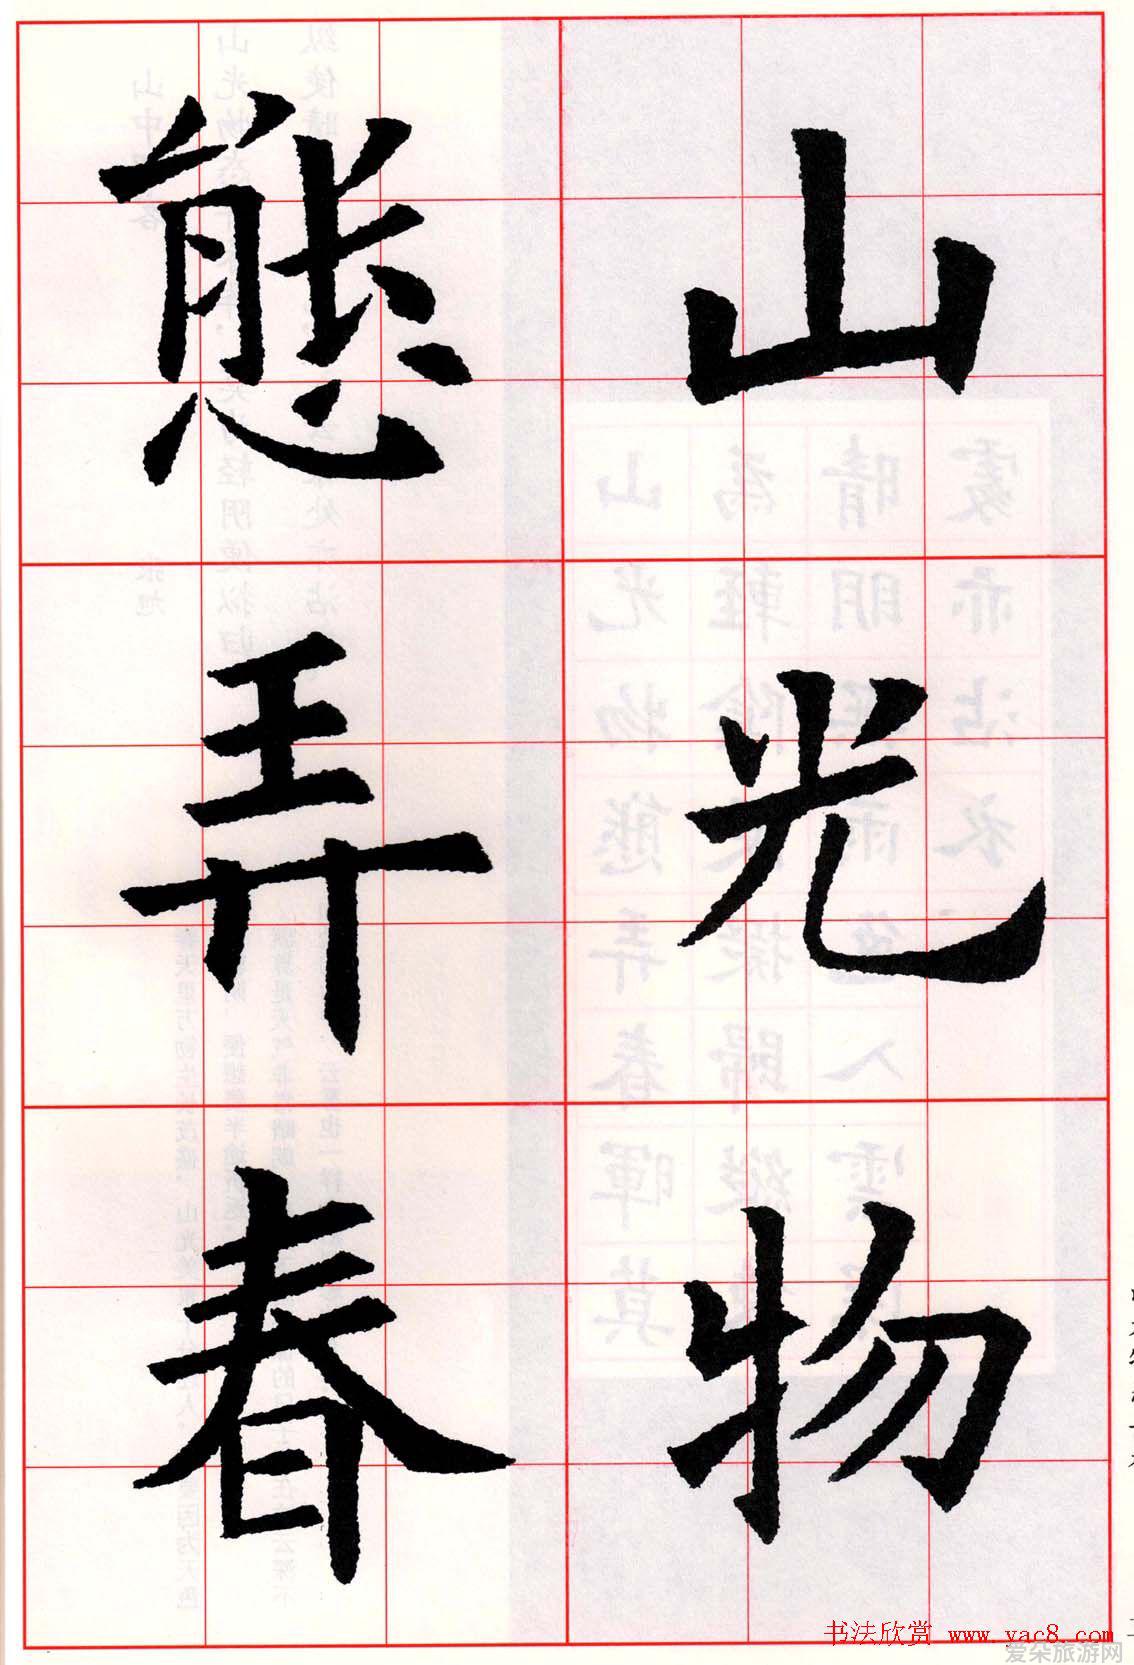 山光物
態弄春
书法欣赏 www.yac8.com
爱朵旅游网